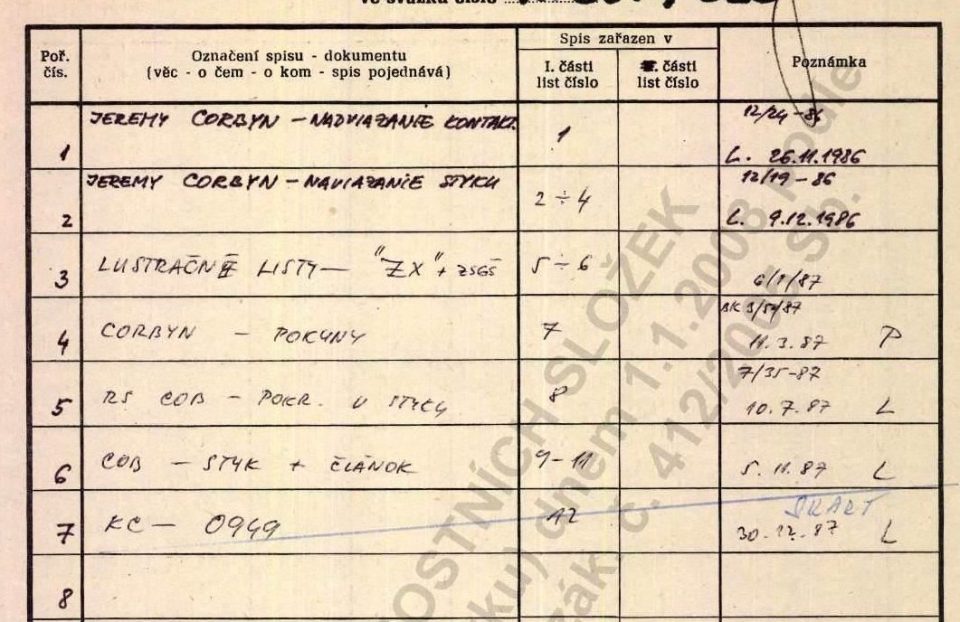 ve svazku číslo
Poř. čís.
Označení spisu - dokumentu
(věc - o čem - o kom - spis pojednává)
Spis zařazen v
I. části list číslo
části list číslo
Poznámka
1 JEREMY CORBYN - NADVIAZANIE KONTAKT. 1 12/24-86
L. 26.11.1986
2 JEREMY CORBYN - NAVIAZANIE STYKU 2 ÷ 4 12/19-86
L. 9.12.1986
3 LUSTRAČNÉ LISTY - "ZX" + ZSGŠ 5 ÷ 6 6/1/87
4 CORBYN - POKYNY 7
11.3.87 P
5 RS COB - POKR. V STYKU 8 7/35-87
10.7.87 L
6 COB - STYK + ČLÁNOK 9-11 5.11.87 L
7 KC - 0949 12 SKART
30.12.87 L
8
OSTNÍCH SLOŽEK
ku) dnem 1.1.2008 podle
zák. č. 412/2005 Sb.